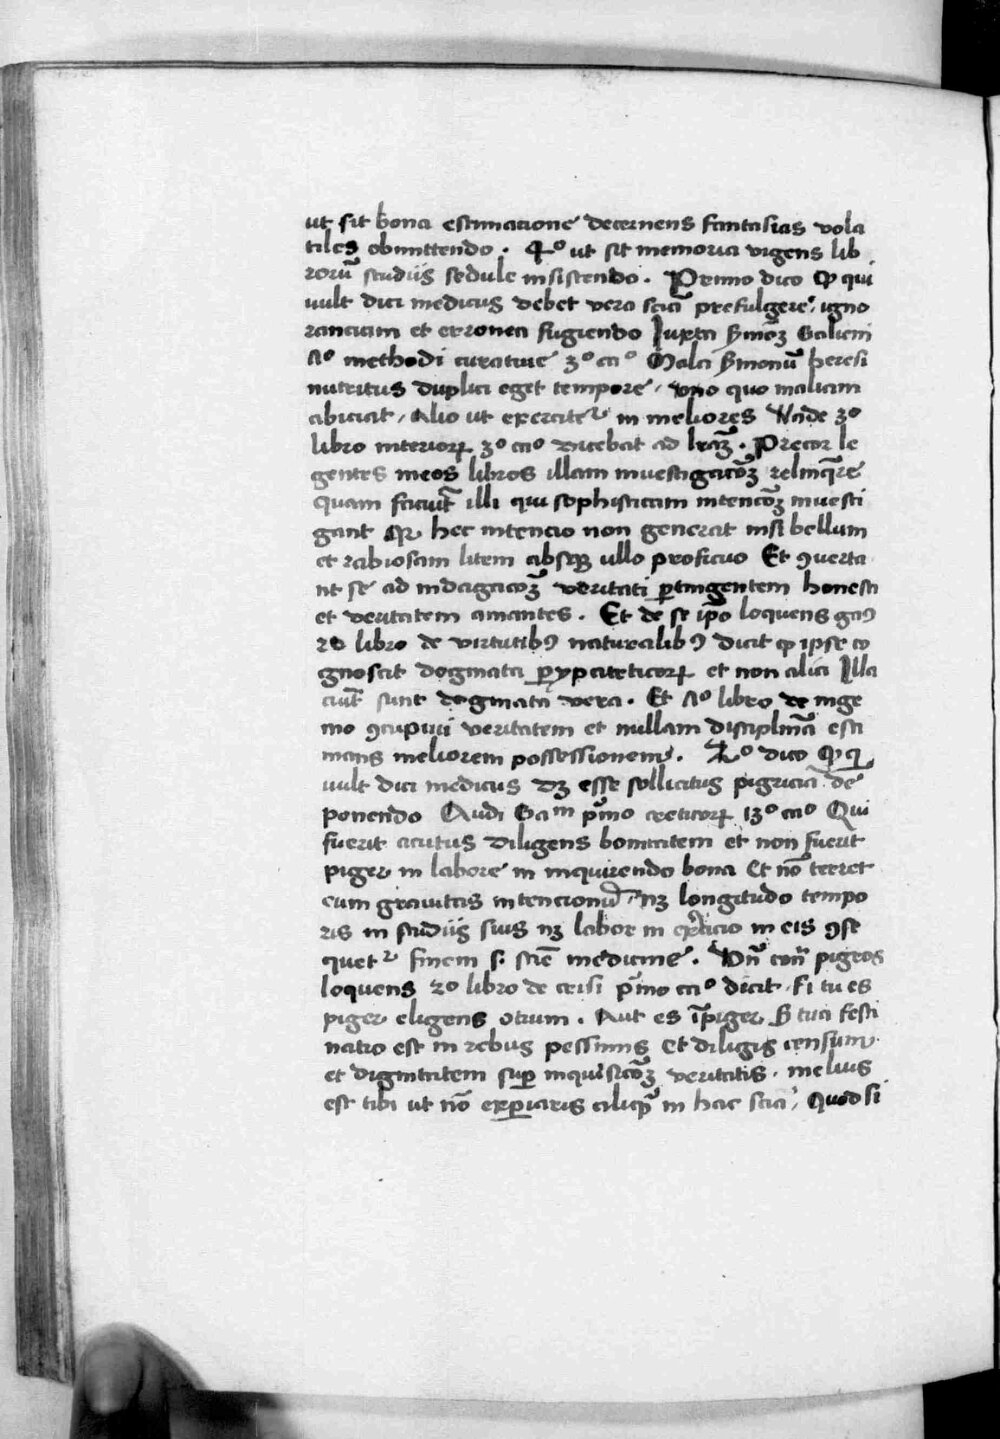 ut sit bona estimacione decernens fantasias vola
tiles obmittendo . 4º ut sit memoria vigens lib
rorū studiis sedule insistendo . Primo dico ꝙ qui
vult dici medicus debet vera sciā prefulgere, igno
ranciam et erronea fugiendo Iuxta Galieni
methodi curative 3º caº Mala heresi
nutritus duplici eget tempore, uno quo maliciam
abiciat, Alio ut exercitet᷑ in meliores Unde 3º
libro interiorꝝ 3º caº dicebat ad . Precor le
gentes meos libros illam investigacōꝫ relinq̄re
quam faciūt illi qui sophisticam intencōꝫ investi
gant hec intencio non generat nisi bellum
et rabiosam litem absqꝫ ullo proficuo Et ꝯverta
nt se ad indagacōꝫ veritati ꝑtingentem honesta
et veritatem amantes . Et de se ip̄o loquens gaꝰ
2º libro de virtutibꝰ naturalibꝰ dicit ꝙ ipse co
gnoscit dogmata ꝑypateticorꝝ et non alia Illa
sunt dogmata vera . Et libro de inge
nio ꝯcupivi veritatem et nullam disciplinā esti
mans meliorem possessionem . 2º dico ꝙ qi
vult dici medicus dꝫ esse sollicitus pigriciā de
ponendo Audi Gam pᵒmo creticorꝝ 13º caº Qui
fuerit acutus diligens bonitatem et non fuerit
piger in labore in inquirendo bona Et nō terret
eum gravitas intencionū, nꝫ longitudo tempo
ris in studiis suis nꝫ labor in in eis ꝯse
quet᷑ finem s. sciē medicine . Uñ pigros
loquens 2º libro de crisi pᵒmo caº dicit, si tu es
piger eligens otium . Aut es īpiger sꝫ tua festi
natio est in rebus pessimis Et diligis censum
et dignitatem suꝑ inquisicōꝫ veritatis, melius
est tibi ut nō exꝑiaris in hac sciā, Quod si